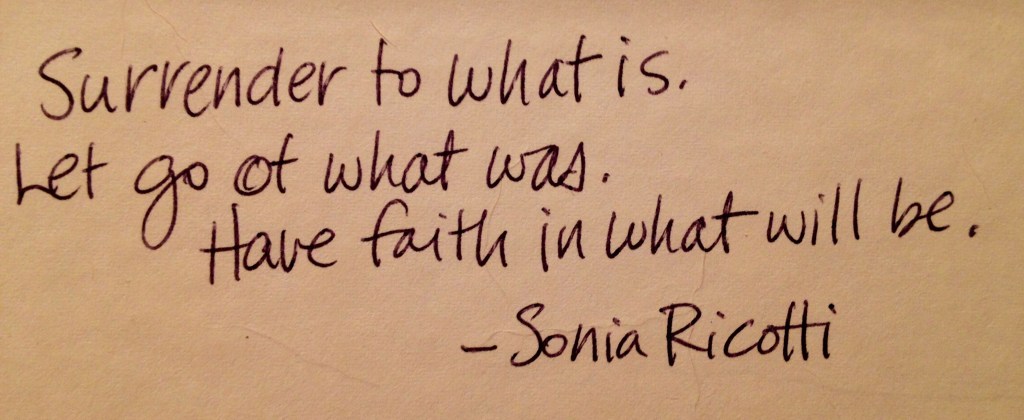 Surrender to what is.
Let go of what was.
Have faith in what will be.
- Sonia Ricotti